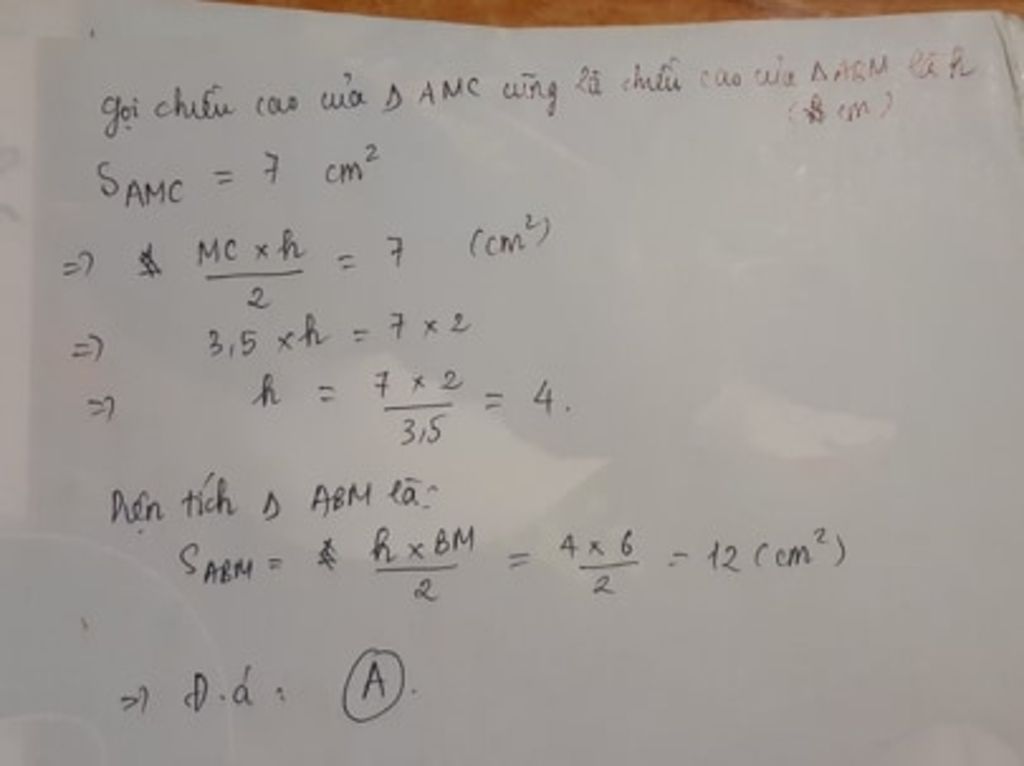 Gọi chiều cao của Δ AMC cũng là chiều cao của Δ ABM là h
(h cm)
S AMC = 7 cm²
=> MC × h / 2 = 7 (cm²)
=> 3,5 × h = 7 × 2
=> h = 7 × 2 / 3,5 = 4.
Diện tích Δ ABM là:
S ABM = h × BM / 2 = 4 × 6 / 2 = 12 (cm²)
=> Đ.á : A.